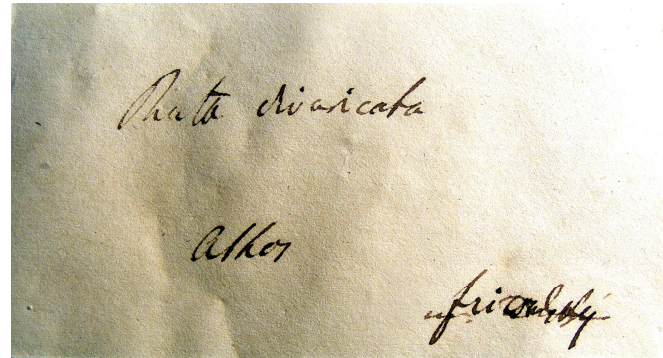 Ruta divaricata
Athos
Frivaldszky